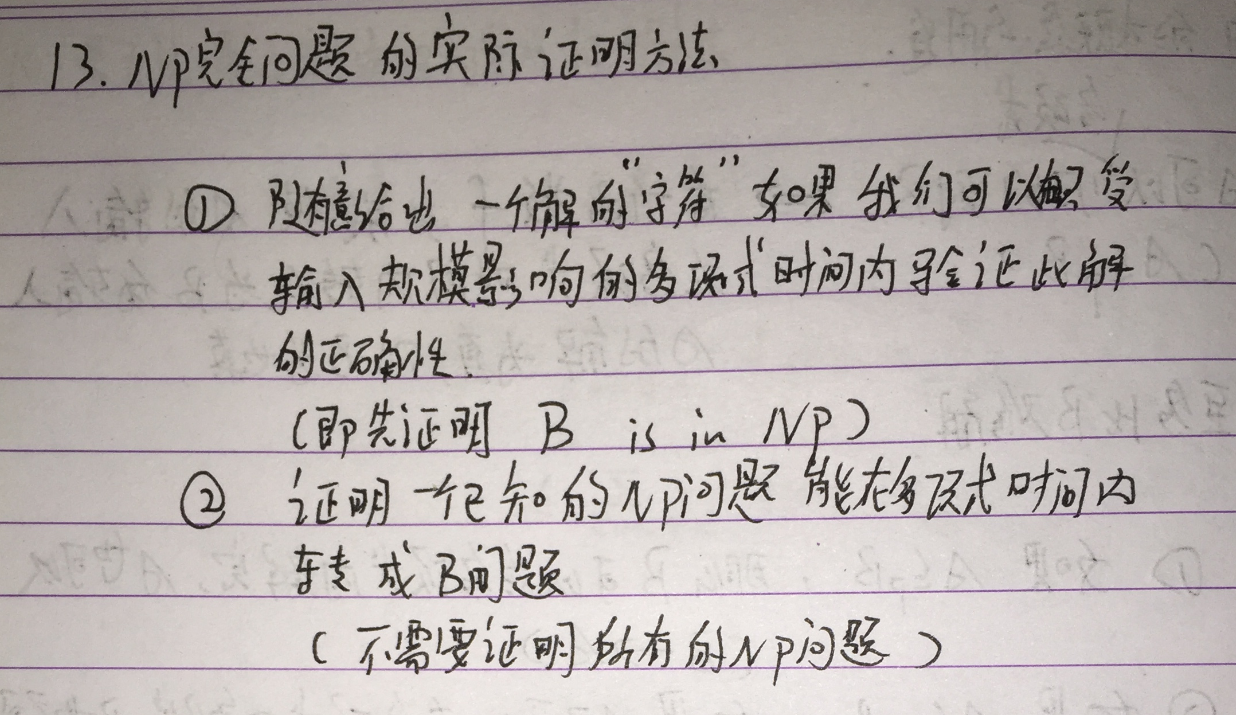 13. NP完全问题 的实际证明方法
① 随意给出 一个解的"字符" 如果 我们可以 受
输入 规模影响的多项式时间内 验证此解
的正确性.
(即先证明 B is in NP)
② 证明一个已知的NP问题 能在多项式时间内
转成 B问题
(不需要证明所有的NP问题)